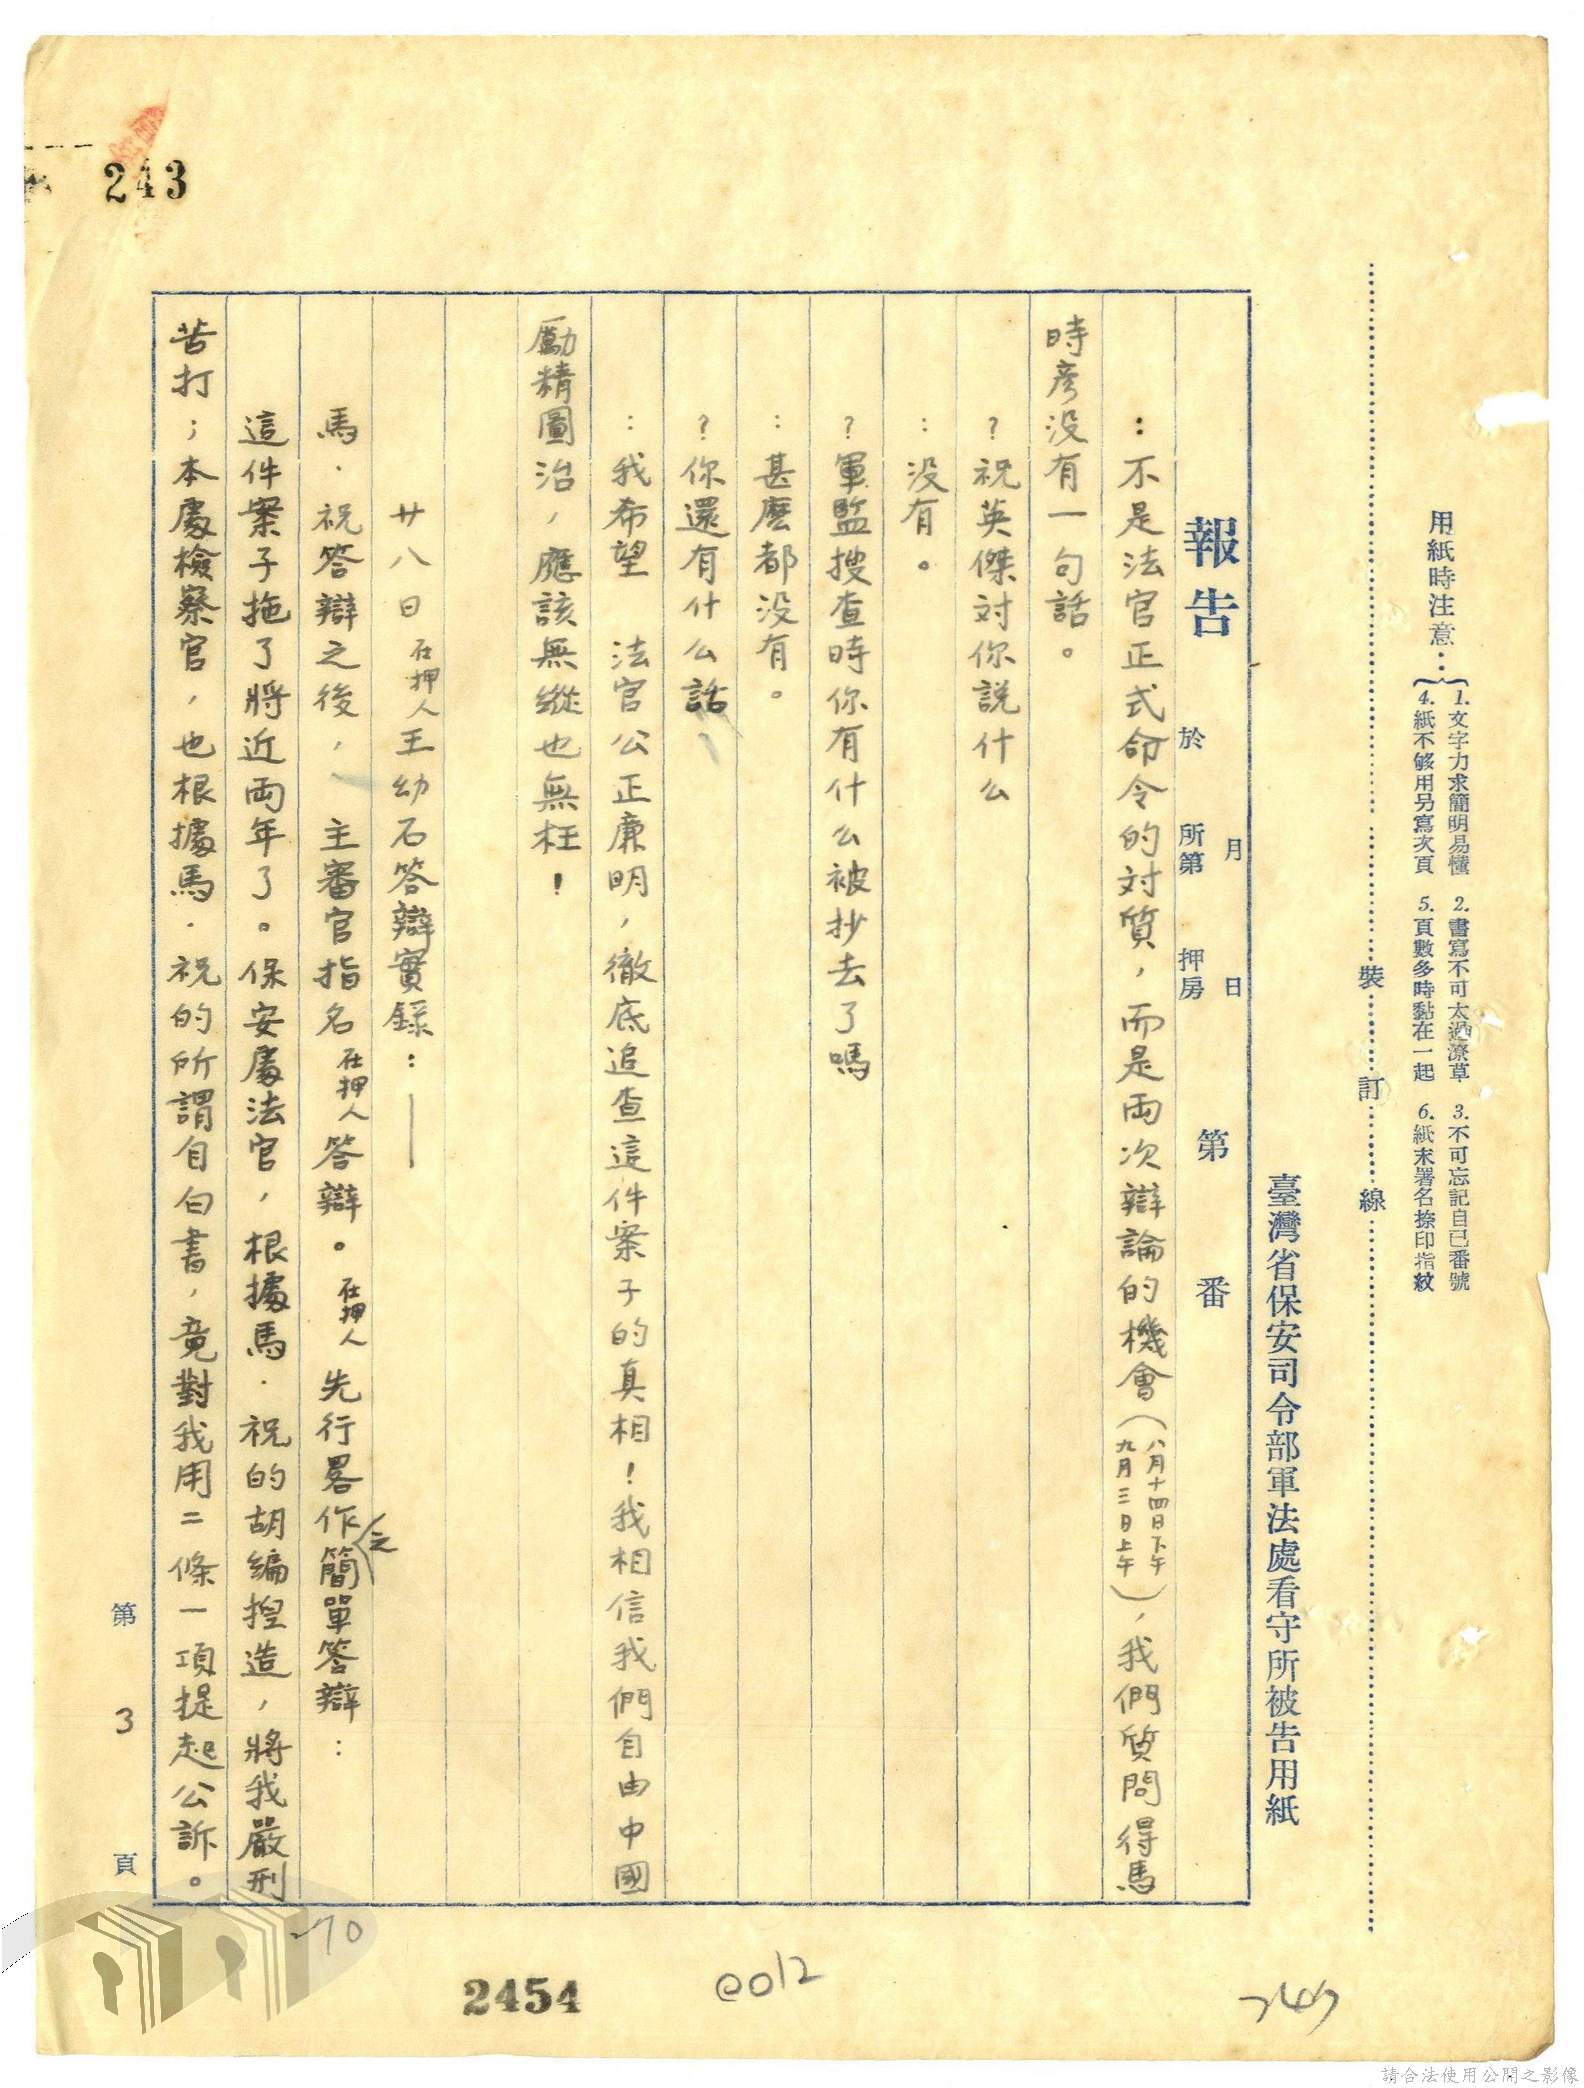 用紙時注意：
1. 文字力求簡明易懂 2. 書寫不可太過潦草 3. 不可忘記自己番號
4. 紙不够用另寫次頁 5. 頁數多時黏在一起 6. 紙末署名捺印指紋
裝訂線
臺灣省保安司令部軍法處看守所被告用紙
報告
月 日
於 所第 押房 第 番
：不是法官正式命令的対質，而是両次辯論的機會（八月十四日下午九月三日上午），我們質問得馬
時彥没有一句話。
？祝英傑対你説什么
：没有。
？軍監搜查時你有什么被抄去了嗎
：甚麽都没有。
？你還有什么話
：我希望 法官公正廉明，徹底追查這件案子的真相！我相信我們自由中國
勵精圖治，應該無縱也無枉！
廿八日在押人王幼石答辯實錄：——
馬．祝答辯之後，主審官指名在押人答辯。在押人先行畧作之簡單答辯：
這件案子拖了將近両年了。保安處法官，根據馬．祝的胡編揑造，將我嚴刑
苦打；本處檢察官，也根據馬．祝的所謂自白書，竟對我用二條一項提起公訴。
第 3 頁
243
70
2454
0012
247
請合法使用公開之影像